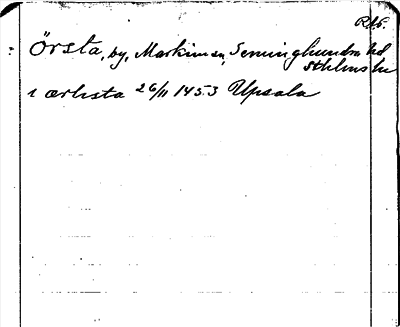 RAÄ.
Örsta, by, Markims sn, Seminghundra hd
Sthlms län
i ærlista 26/11 1453 Upsala